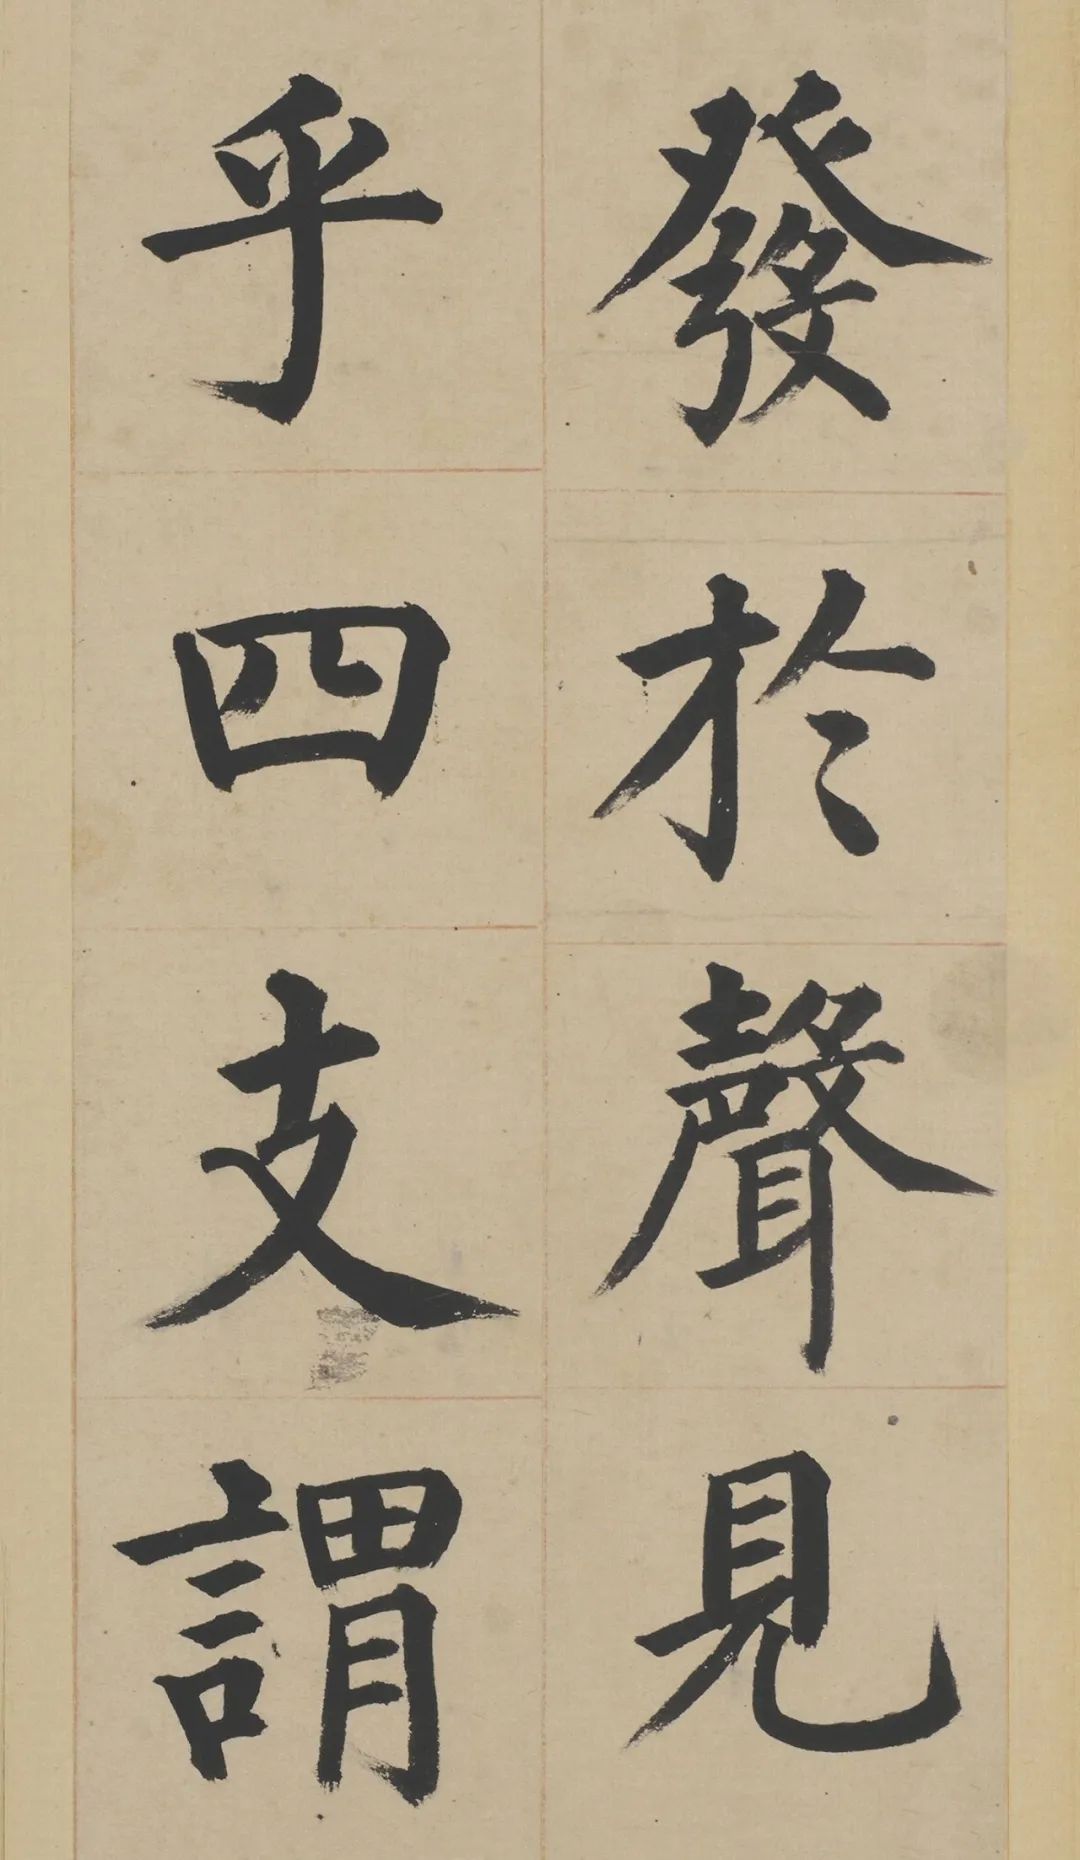 發於聲見
乎四支謂